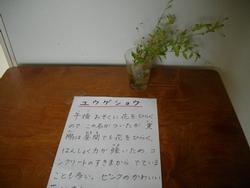 ユウゲショウ
午後 おそくに 花をひらく
ので この名がついたが 実
際は 昼間でも 花をひらく。
はんしょく力が 強いため コ
ンクリートのすきまから でている
ことも多い。ピンクのかわいい